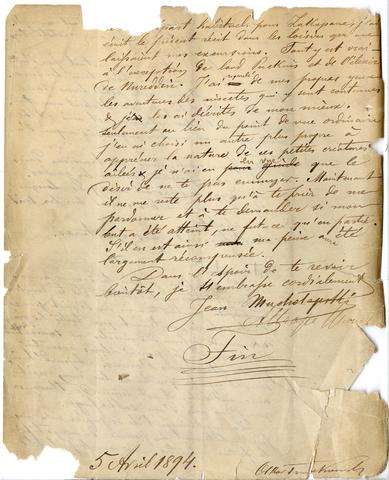 départ habituel pour Zakopane, j'ai
écrit le présent récit dans les loisirs que me
laissaient nos excursions. Tout y est vrai
à l'exception de lord Puckins et de l'élixir
de Nureddin. J'ai de mes propres yeux
les aventures des insectes qui y sont contenues
& les ai décrites de mon mieux.
Seulement au lieu du point de vue ordinaire
j'en ai choisi un autre plus propre à
apprécier la nature de ces petites créatures
ailées & je n'ai eu en vue que le
désir de ne pas t'ennuyer. Maintenant
il ne me reste plus qu'à te prier de me
pardonner et à te demander si mon
but a été atteint, ne fut ce qu'en partie.
S'il en est ainsi ma peine aura été
largement récompensée.
Dans l'espoir de te revoir
bientôt, je t'embrasse cordialement
Jean Mucholapski
Fin
5 Avril 1894.